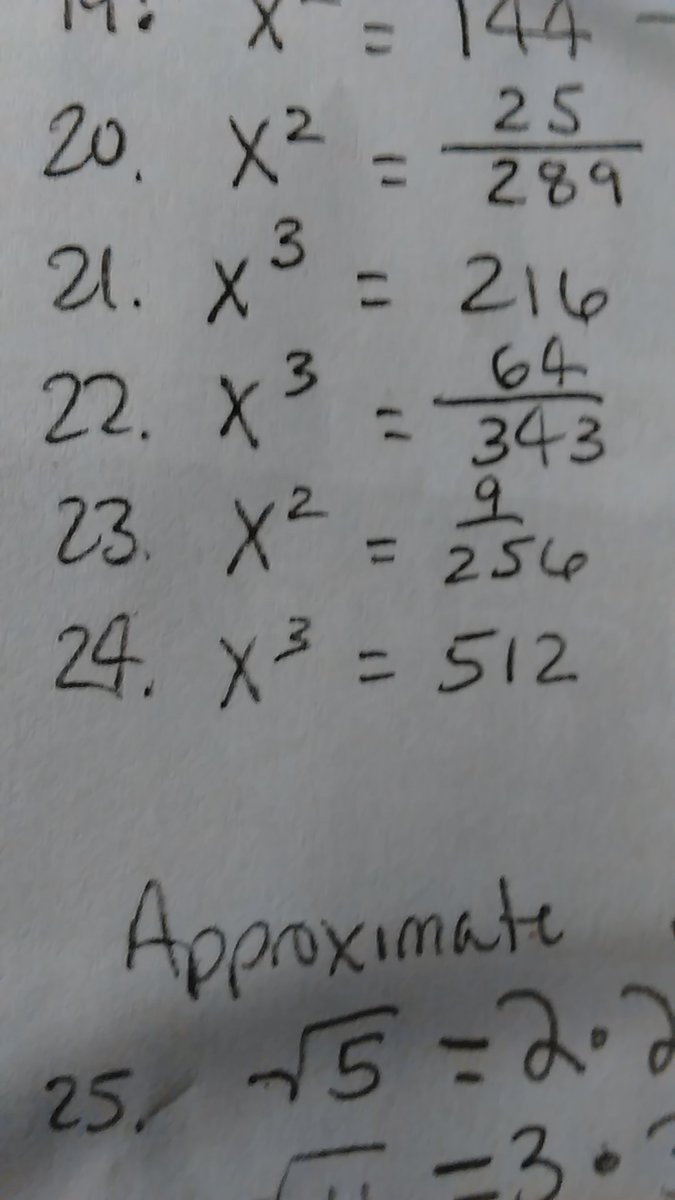 19. x² = 144 -
20. x² = 25/289
21. x³ = 216
22. x³ = 64/343
23. x² = 9/256
24. x³ = 512
Approximate
25. √5 = 2.2
= 3.